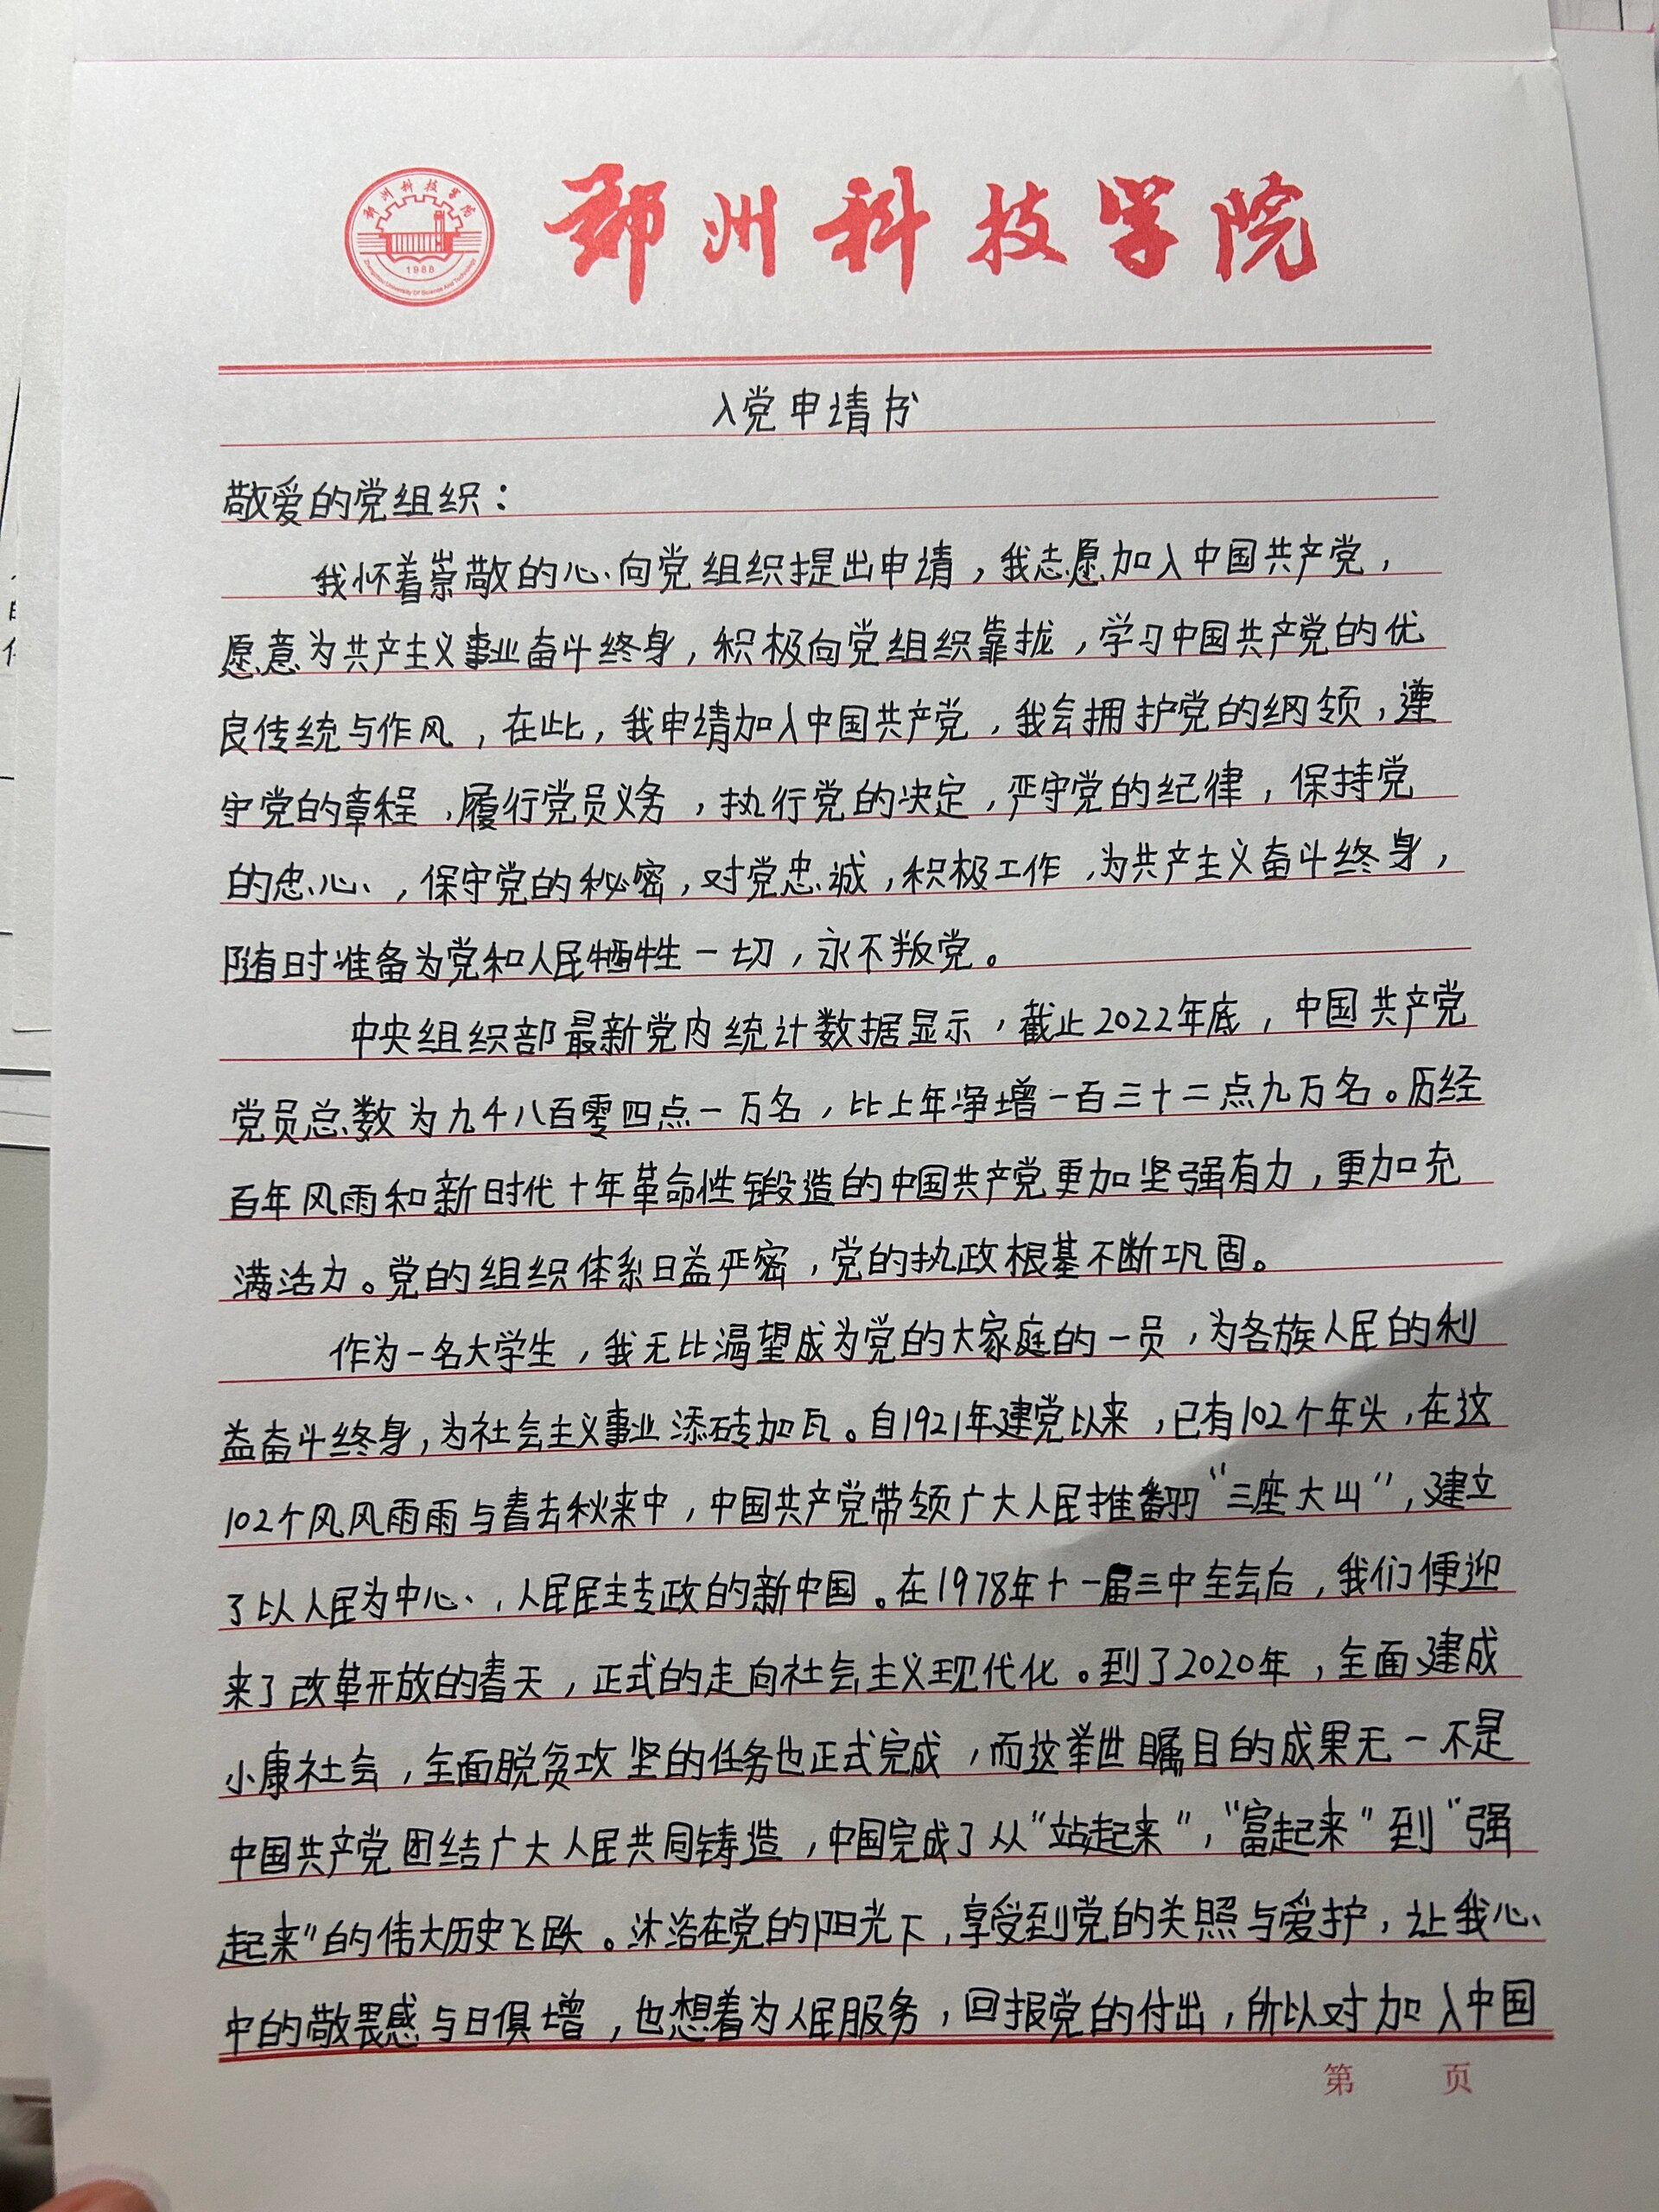 郑州科技学院
1988
Zhengzhou University Of Science And Technology
郑州科技学院
入党申请书
敬爱的党组织：
我怀着崇敬的心向党组织提出申请，我志愿加入中国共产党，
愿意为共产主义事业奋斗终身，积极向党组织靠拢，学习中国共产党的优
良传统与作风，在此，我申请加入中国共产党，我会拥护党的纲领，遵
守党的章程，履行党员义务，执行党的决定，严守党的纪律，保持党
的忠心，保守党的秘密，对党忠诚，积极工作，为共产主义奋斗终身，
随时准备为党和人民牺牲一切，永不叛党。
中央组织部最新党内统计数据显示，截止2022年底，中国共产党
党员总数为九千八百零四点一万名，比上年净增一百三十二点九万名。历经
百年风雨和新时代十年革命性锻造的中国共产党更加坚强有力，更加充
满活力。党的组织体系日益严密，党的执政根基不断巩固。
作为一名大学生，我无比渴望成为党的大家庭的一员，为各族人民的利
益奋斗终身，为社会主义事业添砖加瓦。自1921年建党以来，已有102个年头，在这
102个风风雨雨与春去秋来中，中国共产党带领广大人民推翻“三座大山”，建立
了以人民为中心，人民民主专政的新中国。在1978年十一届三中全会后，我们便迎
来了改革开放的春天，正式的走向社会主义现代化。到了2020年，全面建成
小康社会，全面脱贫攻坚的任务也正式完成，而这举世瞩目的成果无一不是
中国共产党团结广大人民共同铸造，中国完成了从“站起来”，“富起来”到“强
起来”的伟大历史飞跃。沐浴在党的阳光下，享受到党的关照与爱护，让我心
中的敬畏感与日俱增，也想着为人民服务，回报党的付出，所以对加入中国
第 页